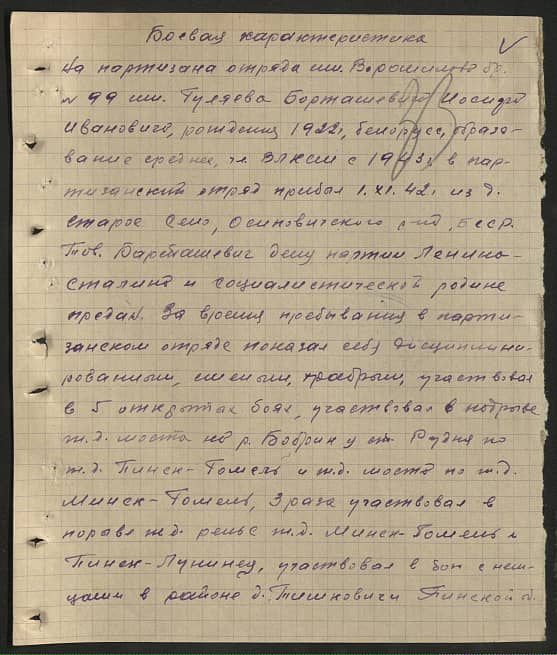 Боевая характеристика
На партизана отряда им. Ворошилова бр.
№ 99 им. Гуляева Борташевича Иосифа
Ивановича, рождения 1922г, белорусс, образо-
вание среднее, чл ВЛКСМ с 1943г, в пар-
тизанский отряд прибыл 1.XI.42г из д.
Старое Село, Осиповичского р-на, БССР.
Тов. Барташевич делу партии Ленина-
Сталина и социалистической родине
предан. За время пребывания в парти-
занском отряде показал себя дисциплини-
рованным, смелым, храбрым, участвовал
в 5 открытых боях, участвовал в подрыве
ж.д. моста на р. Бобрик у ст. Рудня по
ж.д. Пинск-Гомель и ж.д. моста по ж.д.
Минск-Гомель, 3 раза участвовал в
порыве ж.д. рельс ж.д. Минск-Гомель и
Пинск-Лунинец, участвовал в бою с нем-
цами в районе д. Тишковичи Пинской о.